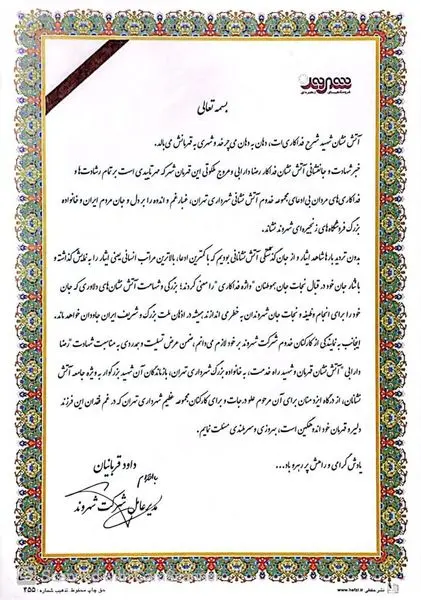 شهروند
فروشگاه‌های زنجیره‌ای
بسمه تعالی
آتش نشان شهید شرح فداکاری‌ات، دهان به دهان می‌چرخد و شهری به قهرمانش می‌بالد.
خبر شهادت و جانفشانی آتش نشان فداکار رضا دارابی و عروج ملکوتی این قهرمان شهر که مهر تاییدی است بر تمام رشادت‌ها و
فداکاری‌های مردان بی‌ادعای مجموعه خدوم آتش نشانی شهرداری تهران، غبار غم و اندوه را بر دل و جان مردم ایران و خانواده
بزرگ فروشگاه‌های زنجیره‌ای شهروند نشاند.
بدون تردید بارها شاهد ایثار و از جان گذشتگی آتش نشانانی بودیم که با کمترین ادعا، بالاترین مراتب انسانی یعنی ایثار را به نمایش گذاشته و
با نثار جان خود در قبال نجات جان هموطنان "واژه فداکاری" را معنی کردند؛ بزرگی و شهامت آتش نشان‌های دلاوری که جان
خود را برای انجام وظیفه و نجات جان شهروندان به خطر می اندازند همیشه در اذهان ملت بزرگ و شریف ایران جاودان خواهد ماند.
اینجانب به نمایندگی از کارکنان خدوم شرکت شهروند بر خود لازم می‌دانم، ضمن عرض تسلیت و همدردی به مناسبت شهادت "رضا
دارابی" آتش نشان قهرمان و شهید راه خدمت، به خانواده بزرگ شهرداری تهران، بازماندگان آن شهید بزرگوار به ویژه جامعه آتش
نشانان، از درگاه ایزد منان برای آن مرحوم علو درجات و برای کارکنان مجموعه عظیم شهرداری تهران که در غم فقدان این فرزند
دلیر و قهرمان خود اندوهگین است، بهروزی و سربلندی مسئلت نمایم.
یادش گرامی و راهش پر رهرو باد...
داود قربانیان
مدیرعامل شرکت شهروند
نشر حافظی www.hafzi.ir
حق چاپ محفوظ. تذهیب شماره: ۲۵۵